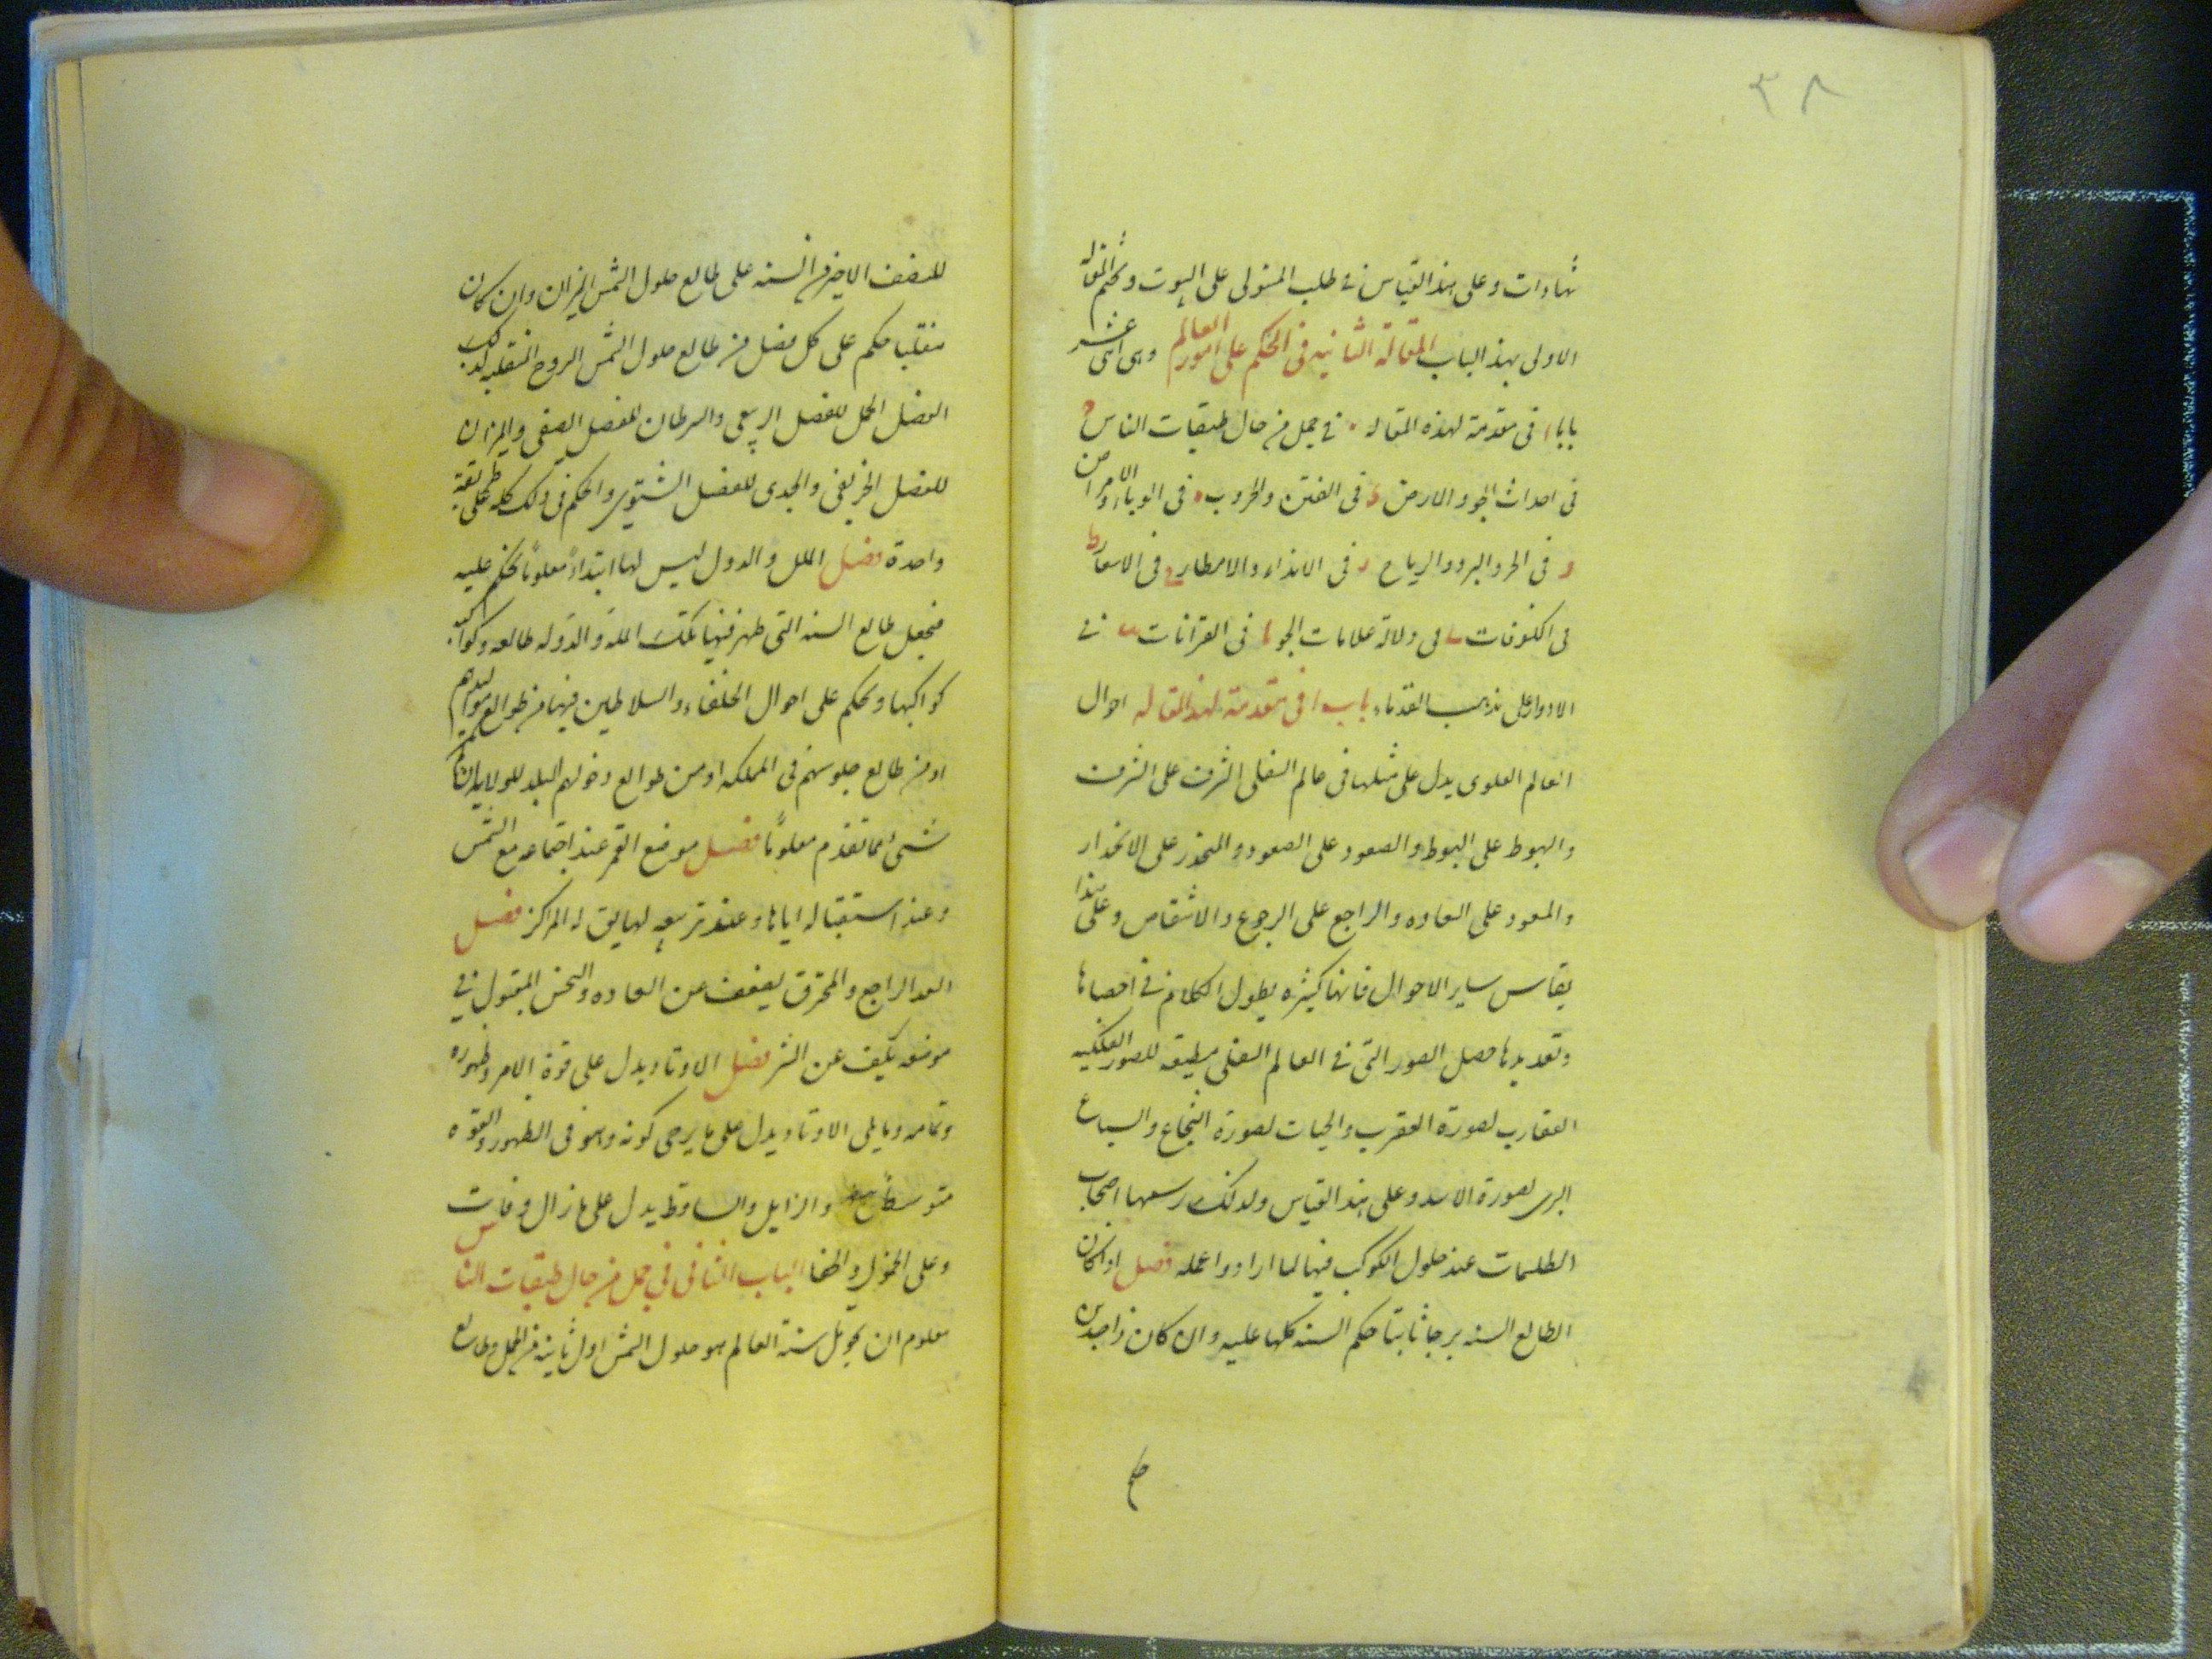 ٣٨
شهادات وعلى هذا القياس في طلب المستولى على البيوت ونختم المقالة
الاولى بهذا الباب المقالة الثانيه فى الحكم على امور العالم وهى اثنى عشر
بابا ا فى مقدمة لهذه المقاله ب فى جمل من حال طبقات الناس ج
فى احداث الجو والارض د فى الفتن والحروب ه فى الوباء والامراض
و فى الحر والبرد والرياح ز فى الانداء والامطار ح فى الاسعار ط
فى الكسوفات ى فى دلالة علامات الجو يا فى القرانات يب فى
الادوار على مذهب القدماء باب ا فى مقدمة لهذه المقاله احوال
العالم العلوى يدل على مثلها فى عالم السفلى الشرف على الشرف
والهبوط على الهبوط والصعود على الصعود والمنحدر على الانحدار
والسعود على السعاده والراجع على الرجوع والانتقاص وعلى هذا
يقاس ساير الاحوال فانها كثيره يطول الكلام فى احصائها
وتعديدها فصل الصور التى فى العالم السفلى مطيعه للصور الفلكيه
العقارب لصورة العقرب والحيات لصورة الشجاع والسباع
البرى لصورة الاسد وعلى هذا القياس ولذلك رسمها اصحاب
الطلسمات عند حلول الكوكب فيها لما ارادوا عمله فصل اذا كان
الطالع السنه برجا ثابتا حكم السنه كلها عليه وان كان ذا جسدين
للنصف الاخير من السنه على طالع حلول الشمس الميزان وان كان
منقلبا حكم على كل فصل من طالع حلول الشمس البروج المنقلبه لذلك
الفصل الحمل للفصل الربيعى والسرطان للفصل الصيفى والميزان
للفصل الخريفى والجدى للفصل الشتوى والحكم فى ذلك كله على طريقة
واحدة فصل الملل والدول ليس لها ابتداء معلوما نحكم عليه
فنجعل طالع السنه التى ظهر فيها تلك المله والدوله طالعه وكواكب
كواكبها ونحكم على احوال الخلفاء والسلاطين فيها من طوالع مواليدهم
او من طالع جلوسهم فى المملكه او من طوالع دخولهم البلد للولايه ان كان
شىء مما تقدم معلوما فصل موضع القمر عند اجتماعه مع الشمس
وعند استقباله اياها وعند تربيعه لها يق له المراكز فصل
السعد الراجع والمحترق يضعف عن السعاده والنحس المقبول فى
موضعه يكيف عن الشر فصل الاوتاد يدل على قوة الامر وظهوره
وتمامه وما يلى الاوتاد يدل على ما يرجى كونه وهو فى الظهور والقوه
متوسطا والزايل والساقط يدل على ما زال وفات
وعلى الخمول والخفا الباب الثانى فى جمل من حال طبقات الناس
معلوم ان تحويل سنة العالم هو حلول الشمس اول ثانيه من الحمل وطالع